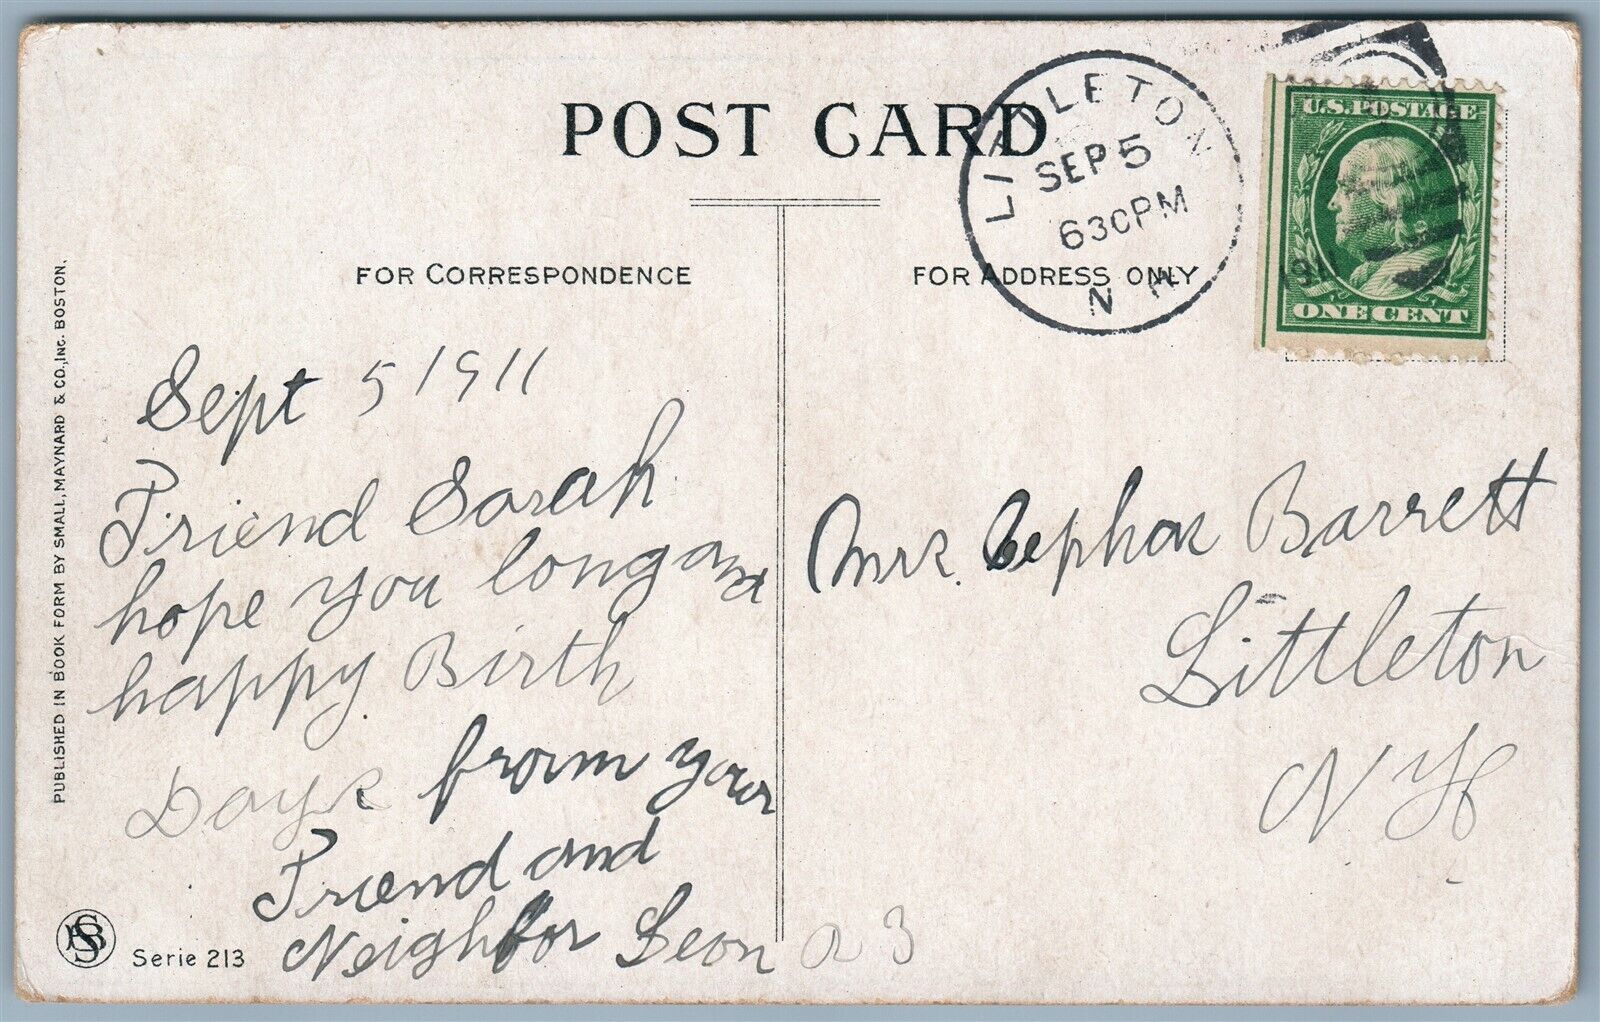 POST CARD
LITTLETON
SEP 5
630PM
N.H.
1911
U.S. POSTAGE
ONE CENT
FOR CORRESPONDENCE
FOR ADDRESS ONLY
PUBLISHED IN BOOK FORM BY SMALL, MAYNARD & CO., INC. BOSTON.
Sept 5 1911
Friend Sarah
hope you long and
happy Birth
Days from your
Friend and
Neighbor Leon
Mrs. Cephas Barrett
Littleton
N H
Serie 213